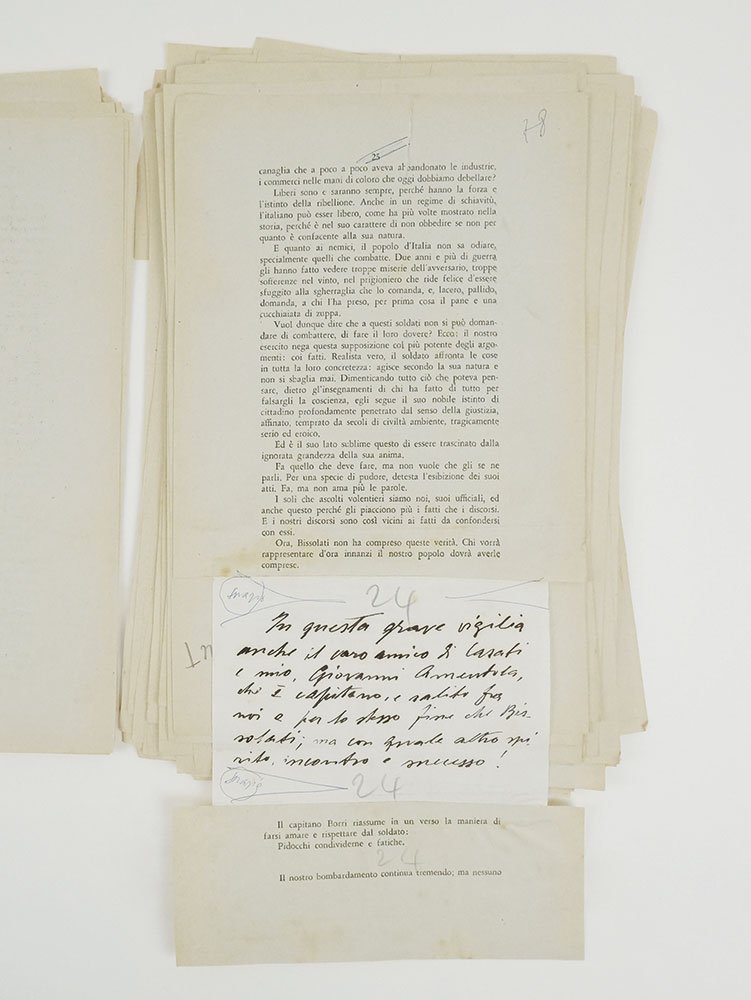 78
23
canaglia che a poco a poco aveva abbandonato le industrie,
i commerci nelle mani di coloro che oggi dobbiamo debellare?
Liberi sono e saranno sempre, perché hanno la forza e
l'istinto della ribellione. Anche in un regime di schiavitù,
l'italiano può esser libero, come ha più volte mostrato nella
storia, perché è nel suo carattere di non obbedire se non per
quanto è confacente alla sua natura.
E quanto ai nemici, il popolo d'Italia non sa odiare,
specialmente quelli che combatte. Due anni e più di guerra
gli hanno fatto vedere troppe miserie dell'avversario, troppe
sofferenze nel vinto, nel prigioniero che ride felice d'essere
sfuggito alla sgherraglia che lo comanda, e, lacero, pallido,
domanda, a chi l'ha preso, per prima cosa il pane e una
cucchiaiata di zuppa.
Vuol dunque dire che a questi soldati non si può doman-
dare di combattere, di fare il loro dovere? Ecco: il nostro
esercito nega questa supposizione col più potente degli argo-
menti: coi fatti. Realista vero, il soldato affronta le cose
in tutta la loro concretezza: agisce secondo la sua natura e
non si sbaglia mai. Dimenticando tutto ciò che poteva pen-
sare, dietro gl'insegnamenti di chi ha fatto di tutto per
falsargli la coscienza, egli segue il suo nobile istinto di
cittadino profondamente penetrato dal senso della giustizia,
affinato, temprato da secoli di civiltà ambiente, tragicamente
serio ed eroico.
Ed è il suo lato sublime questo di essere trascinato dalla
ignorata grandezza della sua anima.
Fa quello che deve fare, ma non vuole che gli se ne
parli. Per una specie di pudore, detesta l'esibizione dei suoi
atti. Fa, ma non ama più le parole.
I soli che ascolti volentieri siamo noi, suoi ufficiali, ed
anche questo perché gli piacciono più i fatti che i discorsi.
E i nostri discorsi sono così vicini ai fatti da confondersi
con essi.
Ora, Bissolati non ha compreso queste verità. Chi vorrà
rappresentare d'ora innanzi il nostro popolo dovrà averle
comprese.
24
In questa grave vigilia
anche il caro amico di Casati
e mio, Giovanni Amendola,
che è capitano, è salito fra
noi e per lo stesso fine che Bis-
solati; ma con quale altro spi
rito, incontro e successo!
24
Il capitano Borri riassume in un verso la maniera di
farsi amare e rispettare dal soldato:
Pidocchi condividerne e fatiche.
24
Il nostro bombardamento continua tremendo; ma nessuno